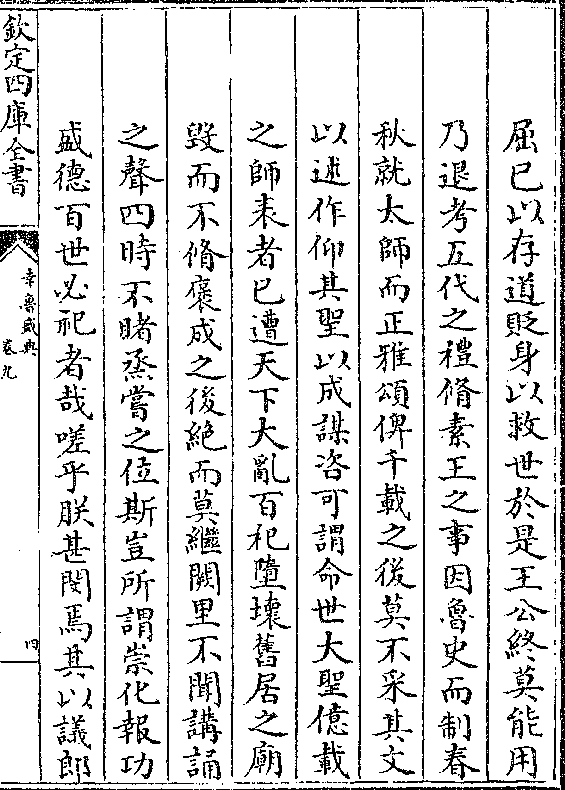 屈已以存道貶身以救世於是王公終莫能用
乃退考五代之禮脩素王之事因魯史而制春
秋就大師而正雅頌俾千載之後莫不采其文
以述作仰其聖以成謀咨可謂命世大聖億載
之師表者已遭天下大亂百祀墮壊舊居之廟
毀而不脩褒成之後絶而莫繼闕里不聞講誦
之聲四時不睹烝嘗之位斯豈所謂崇化報功
盛德百世必祀者哉嗟乎朕甚閔焉其以議郎
欽定四庫全書
幸魯盛典
卷九
四